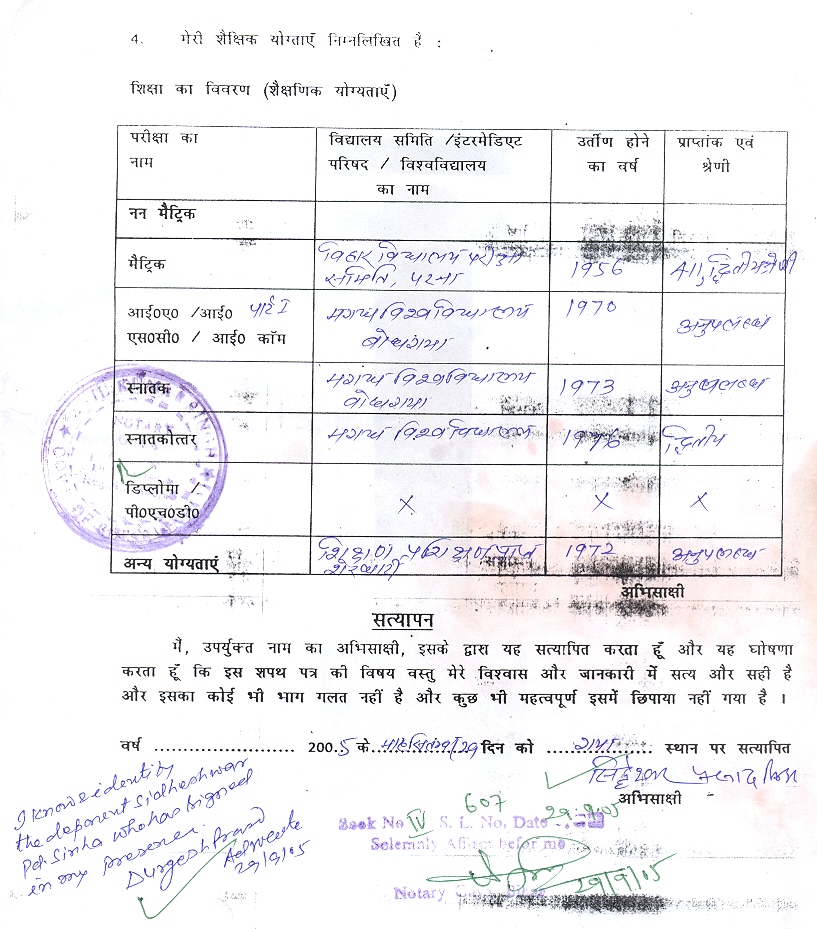 4. मेरी शैक्षिक योग्ताएँ निम्नलिखित है :
शिक्षा का विवरण (शैक्षणिक योग्यताएँ)
परीक्षा का नाम
विद्यालय समिति /इंटरमेडिएट
परिषद / विश्वविद्यालय
का नाम
उर्तीण होने
का वर्ष
प्राप्तांक एवं
श्रेणी
नन मैट्रिक
मैट्रिक
बिहार विद्यालय परीक्षा
समिति, पटना
1956
All, द्वितीय श्रेणी
आई०ए० /आई० पार्ट I
एस०सी० / आई० कॉम
मगध विश्वविद्यालय
बोधगया
1970
अनुपलब्ध
स्नातक
मगध विश्वविद्यालय
बोधगया
1973
अनुपलब्ध
स्नातकोत्तर
मगध विश्वविद्यालय
द्वितीय
डिप्लोमा /
पी०एच०डी०
X X X
अन्य योग्यताएं
शिक्षण प्रशिक्षण
1972
अनुपलब्ध
अभिसाक्षी
सत्यापन
मैं, उपर्युक्त नाम का अभिसाक्षी, इसके द्वारा यह सत्यापित करता हूँ और यह घोषणा
करता हूँ कि इस शपथ पत्र की विषय वस्तु मेरे विश्वास और जानकारी में सत्य और सही है
और इसका कोई भी भाग गलत नहीं है और कुछ भी महत्वपूर्ण इसमें छिपाया नहीं गया है ।
वर्ष ........................ 200.5 के माह सितम्बर/29 दिन को ....गया.... स्थान पर सत्यापित
सिद्धेश्वर प्रसाद सिन्हा
अभिसाक्षी
I know & identity
the deponent Sidheshwar
Pd. Sinha who has signed
in my presence.
Durgesh Prasad
Advocate
29/9/05
607
Book No IV S. L. No, Date 29.9.05
Solemnly Affirm befor me
29/9/05
Notary
NOTARY